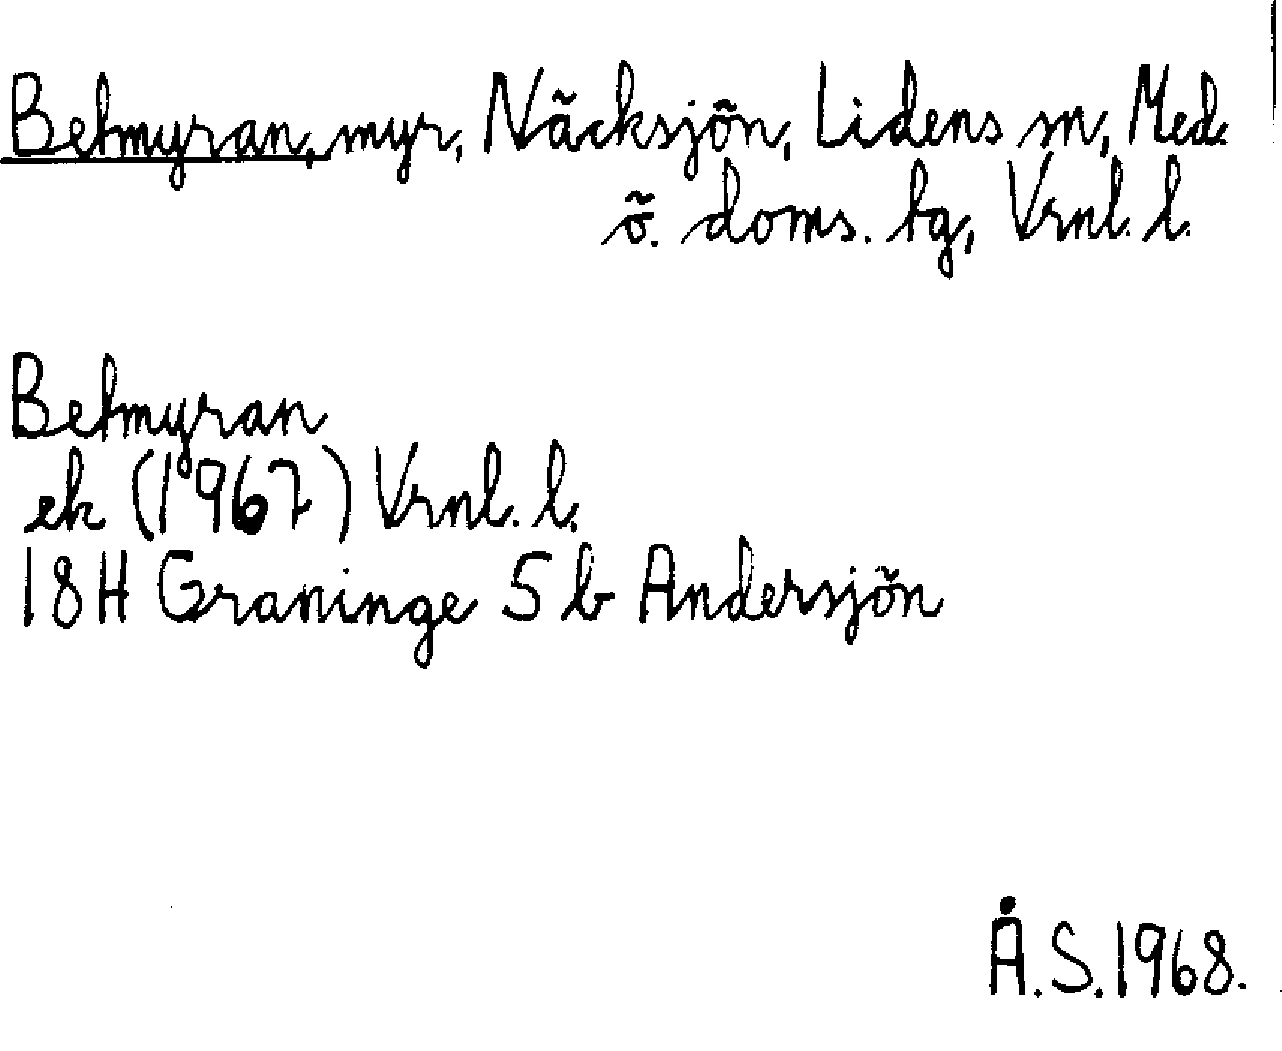 Betmyran, myr, Näcksjön, Lidens sn, Med.
ö. doms. tg, Vrnl. l.
Betmyran
ek (1967) Vrnl. l.
18H Graninge 5 b Andersjön
Å.S. 1968.